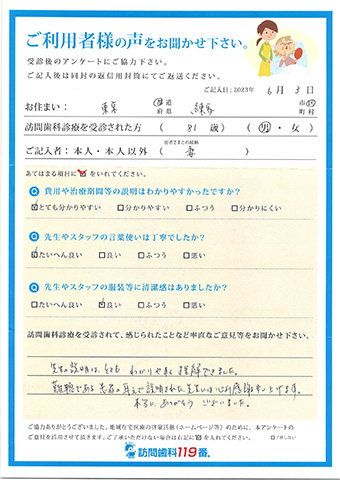 ご利用者様の声をお聞かせ下さい。
受診後のアンケートにご協力下さい。
ご記入後は同封の返信用封筒にてご返送ください。
ご記入日：2023年 6月 3日
お住まい： 東京 都道府県 練馬 市区町村
訪問歯科診療を受診された方 （ 81 歳） （ 男 ・ 女 ）
ご記入者：本人・本人以外 （ 患者さまとの続柄 妻 ）
あてはまる項目に✓をいれてください。
Q 費用や治療期間等の説明はわかりやすかったですか？
☑とても分かりやすい □分かりやすい □ふつう □分かりにくい
Q 先生やスタッフの言葉使いは丁寧でしたか？
☑たいへん良い □良い □ふつう □悪い
Q 先生やスタッフの服装等に清潔感はありましたか？
□たいへん良い ☑良い □ふつう □悪い
訪問歯科診療を受診されて、感じられたことなど率直なご意見等をお聞かせ下さい。
先生の説明は、とても わかりやすく 理解できました。
難聴である 患者の耳元で説明された先生には心より感謝申し上げます。
本当に、ありがとう ございました。
ご協力ありがとうございました。地域在宅医療の啓蒙活動（ホームページ等）のために、本アンケートの
ご意見を活用させて頂きます。ご了承いただけない場合は右記に✓を入れてください。 □了承しない
訪問歯科119番。